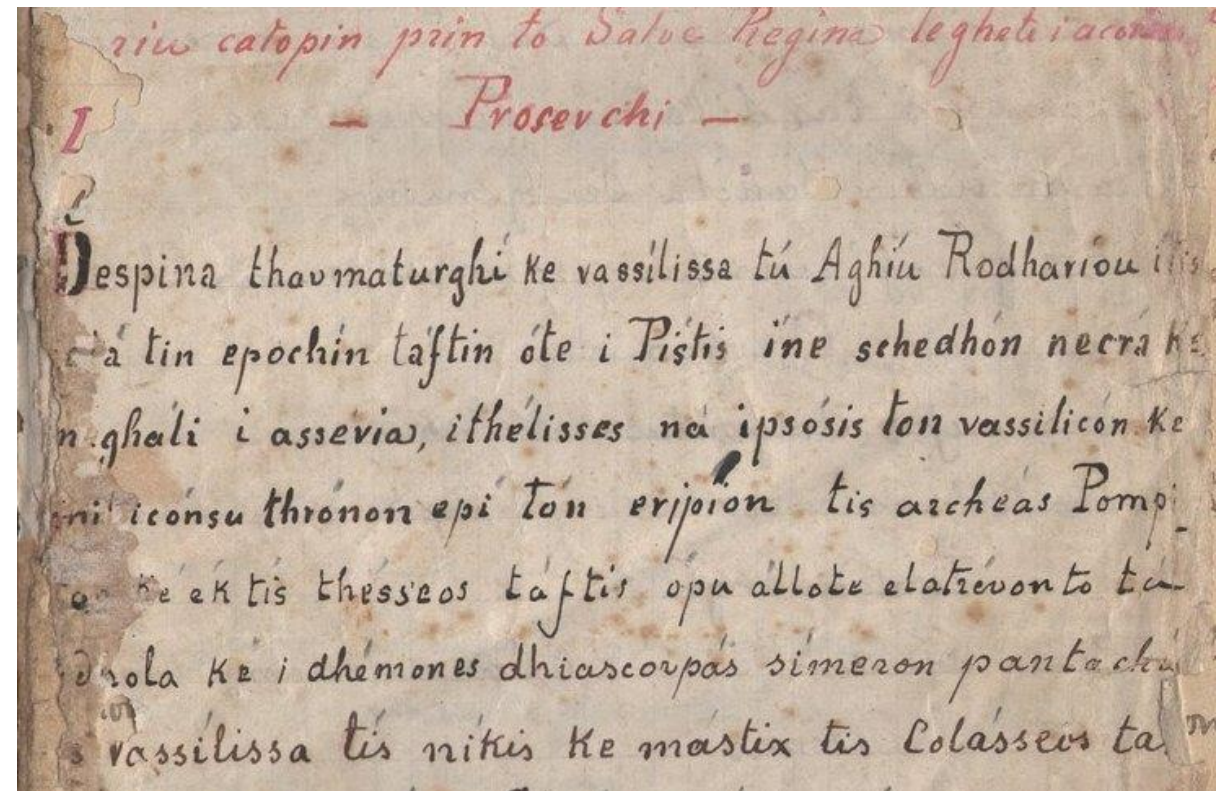 catopin prin to Salve Regina leghete
— Prosevchi —
Despina thavmaturghí ke vassílissa tú Aghíu Rodharíou
tin epochín táftin óte i Pístis íne schedhón necrá
i assevia, ithélisses ná ipsósis ton vassilicón ke
iconsu thrónon epí tón eripíon tis archéas Pompi
ke ek tis thésseos táftis ópu állote elatrévonto ta
ke i dhémones dhiascorpás símeron pantachú
vassílissa tís níkis ke mástix tis Colásseos